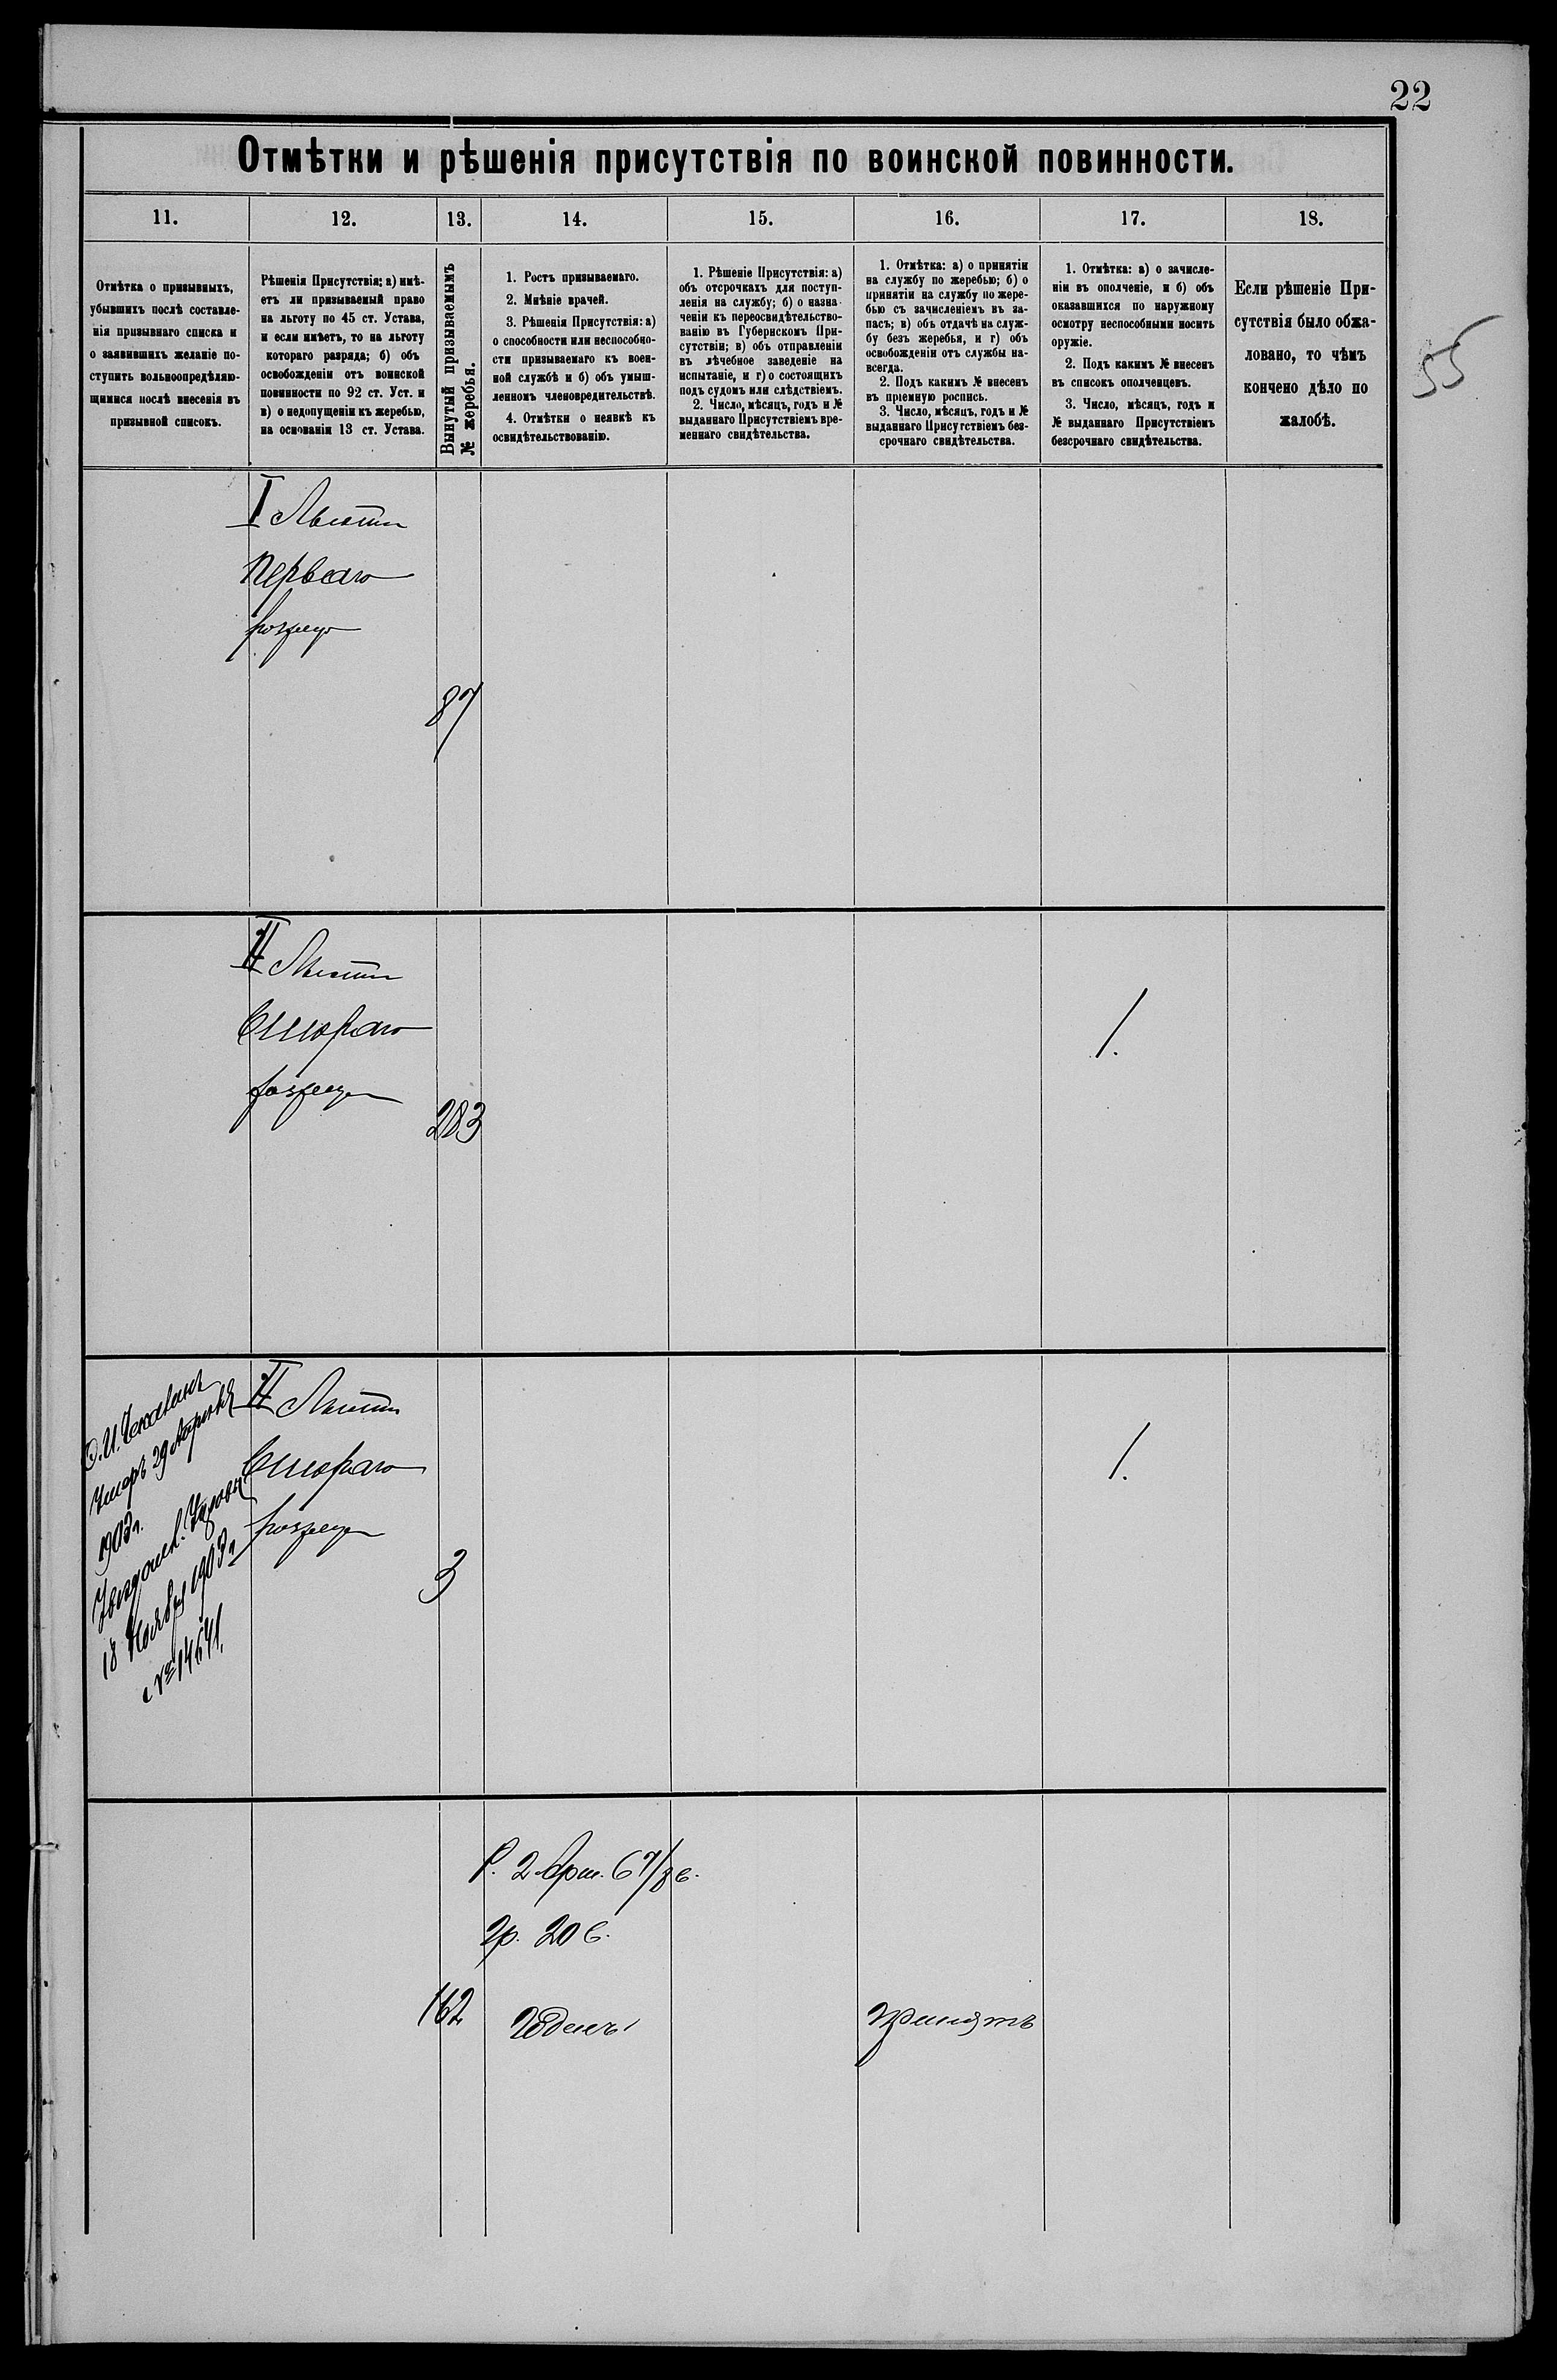 22
Отмѣтки и рѣшенія присутствія по воинской повинности.
11.
12.
13.
14.
15.
16.
17.
18.
Отмѣтка о призывныхъ,
убывшихъ послѣ составле-
нія призывнаго списка и
о заявившихъ желаніе по-
ступить вольноопредѣляю-
щимися послѣ внесенія въ
призывной списокъ.
Рѣшенія Присутствія: а) имѣ-
етъ ли призываемый право
на льготу по 45 ст. Устава,
и если имѣетъ, то на льготу
котораго разряда; б) объ
освобожденіи отъ воинской
повинности по 92 ст. Уст. и
в) о недопущеніи къ жеребью,
на основаніи 13 ст. Устава.
Вынутый призываемымъ
№ жеребья.
1. Ростъ призываемаго.
2. Мнѣніе врачей.
3. Рѣшенія Присутствія: а)
о способности или неспособно-
сти призываемаго къ воен-
ной службѣ и б) объ умыш-
ленномъ членовредительствѣ.
4. Отмѣтки о неявкѣ къ
освидѣтельствованію.
1. Рѣшеніе Присутствія: а)
объ отсрочкахъ для поступ-
ленія на службу; б) о назна-
ченіи къ переосвидѣтельство-
ванію въ Губернскомъ При-
сутствіи; в) объ отправленіи
въ лѣчебное заведеніе на
испытаніе, и г) о состоящихъ
подъ судомъ или слѣдствіемъ.
2. Число, мѣсяцъ, годъ и №
выданнаго Присутствіемъ вре-
меннаго свидѣтельства.
1. Отмѣтка: а) о принятіи
на службу по жеребью; б) о
принятіи на службу по жере-
бью съ зачисленіемъ въ за-
пасъ; в) объ отдачѣ на служ-
бу безъ жеребья, и г) объ
освобожденіи отъ службы на-
всегда.
2. Подъ какимъ № внесенъ
въ пріемную роспись.
3. Число, мѣсяцъ, годъ и №
выданнаго Присутствіемъ без-
срочнаго свидѣтельства.
1. Отмѣтка: а) о зачисле-
ніи въ ополченіе, и б) объ
оказавшихся по наружному
осмотру неспособными носить
оружіе.
2. Подъ какимъ № внесенъ
въ списокъ ополченцевъ.
3. Число, мѣсяцъ, годъ и
№ выданнаго Присутствіемъ
безсрочнаго свидѣтельства.
Если рѣшеніе При-
сутствія было обжа-
ловано, то чѣмъ
кончено дѣло по
жалобѣ.
55
I Льготы
перваго
разряда
87
II Льготы
Второго
разряда
283
1.
Умеръ 29 Апрѣля
1903 г.
18 Ноября 1903 г.
№ 14641.
II Льготы
Второго
разряда
3
1.
Р. 2 арш. 6 7/8 в.
Гр. 20 в.
162
Годенъ
Принятъ